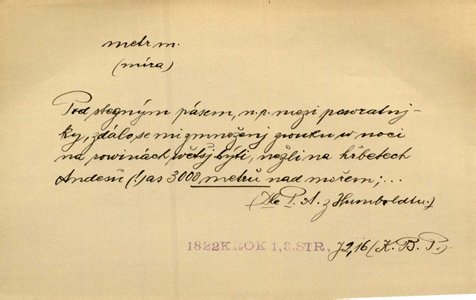 metr m.
(míra)
Pod stegným pásem, n.p. mezi powratnj-
ky, zdálo se mi zmnoženj zwuku w noci
na rowinách wětšj býti, nežli na hřbetech
Andesů (!) as 3000 metrů nad mořem; ...
(Dle P. A. z Humboldtu.)
1822KROK 1,3.STR. 72,16 (K. B. P.)